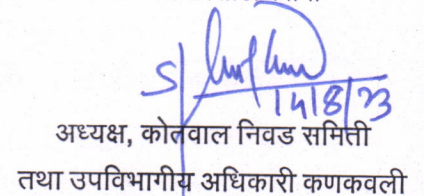 14/8/23
अध्यक्ष, कोतवाल निवड समिती
तथा उपविभागीय अधिकारी कणकवली